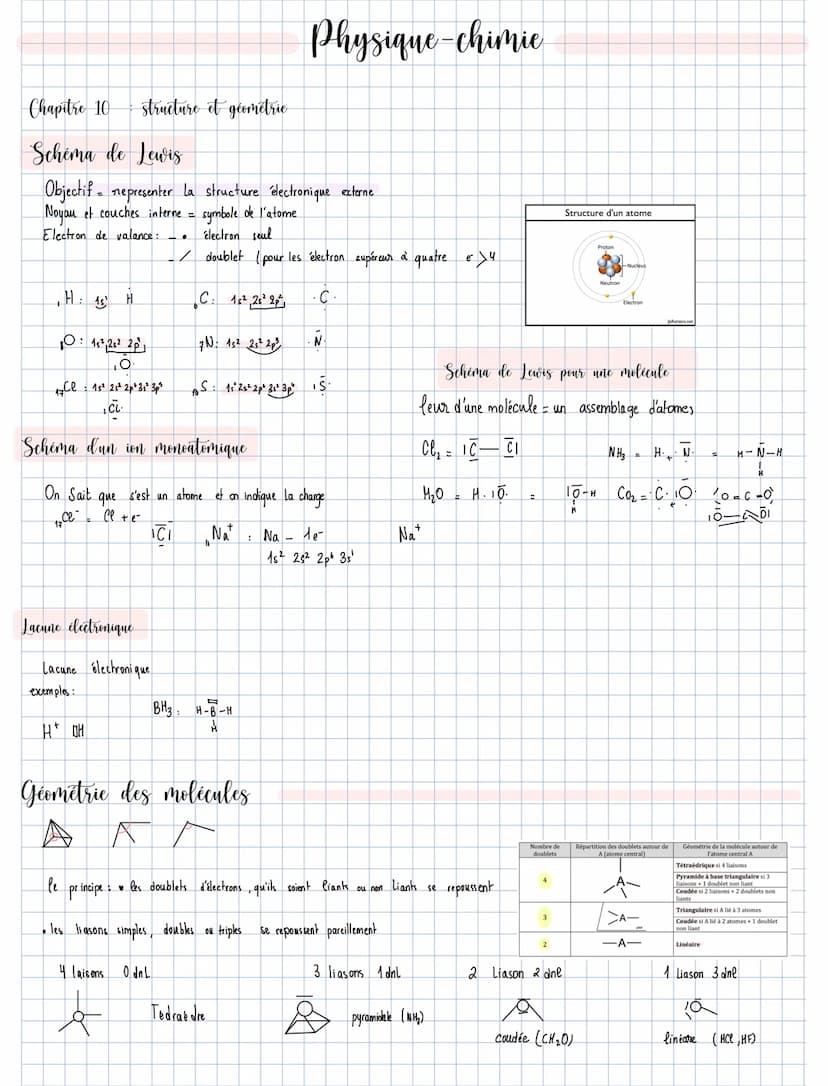 Physique-chimie
Chapitre 10 : structure et géométrie
Schéma de Lewis
Objectif = representer la structure électronique externe
Noyau et couches interne = symbole de l'atome
Electron de valance : - • électron seul
- / doublet (pour les électron supérieur à quatre e⁻ >4
₁H : 1s¹ Ḣ
₆C : 1s² 2s² 2p² ·C·
O : 1s² 2s² 2p⁴
₇N : 1s² 2s² 2p³ ·N·
₁₇Cl : 1s² 2s² 2p⁶ 3s² 3p⁵
S : 1s² 2s² 2p⁶ 3s² 3p⁴
Structure d'un atome
Proton
Nucleus
Neutron
Electron
Schéma de Lewis pour une molécule
leur d'une molécule = un assemblage d'atomes
Cl₂ = |C̄ — C̄l
NH₃ = H· + ·N̄· = H-N̄-H
H
H₂O = H· |Ō· = |Ō-H
H
CO₂ = ·C· + |O
Schéma d'un ion monoatomique
On sait que s'est un atome et on indique la charge
₁₇Cl⁻ = Cl + e⁻
|C̄l
₁₁Na⁺ : Na - 1e⁻
Na⁺
1s² 2s² 2p⁶ 3s¹
Lacune électronique
Lacune électronique
exemples :
BH₃ : H-B-H
H
H⁺ □H
Géométrie des molécules
le principe : • les doublets d'électrons, qu'ils soient liants ou non liants se repoussent
• les liasons simples, doubles ou triples se repoussent pareillement
Nombre de doublets
Répartition des doublets autour de A (atome central)
Géométrie de la molécule autour de l'atome central A
4
A
Tétraédrique si 4 liaisons
Pyramide à base triangulaire si 3 liaisons + 1 doublet non liant
Coudée si 2 liaisons + 2 doublets non liants
3
A
Triangulaire si A lié à 3 atomes
Coudée si A lié à 2 atomes + 1 doublet non liant
2
—A—
Linéaire
4 laisons 0 dnL
Tédraèdre
3 liasons 1 dnl
pyramidale (NH₃)
2 Liason 2 dne
coudée (CH₂O)
1 Liason 3 dne
linéaire (HCl, HF)